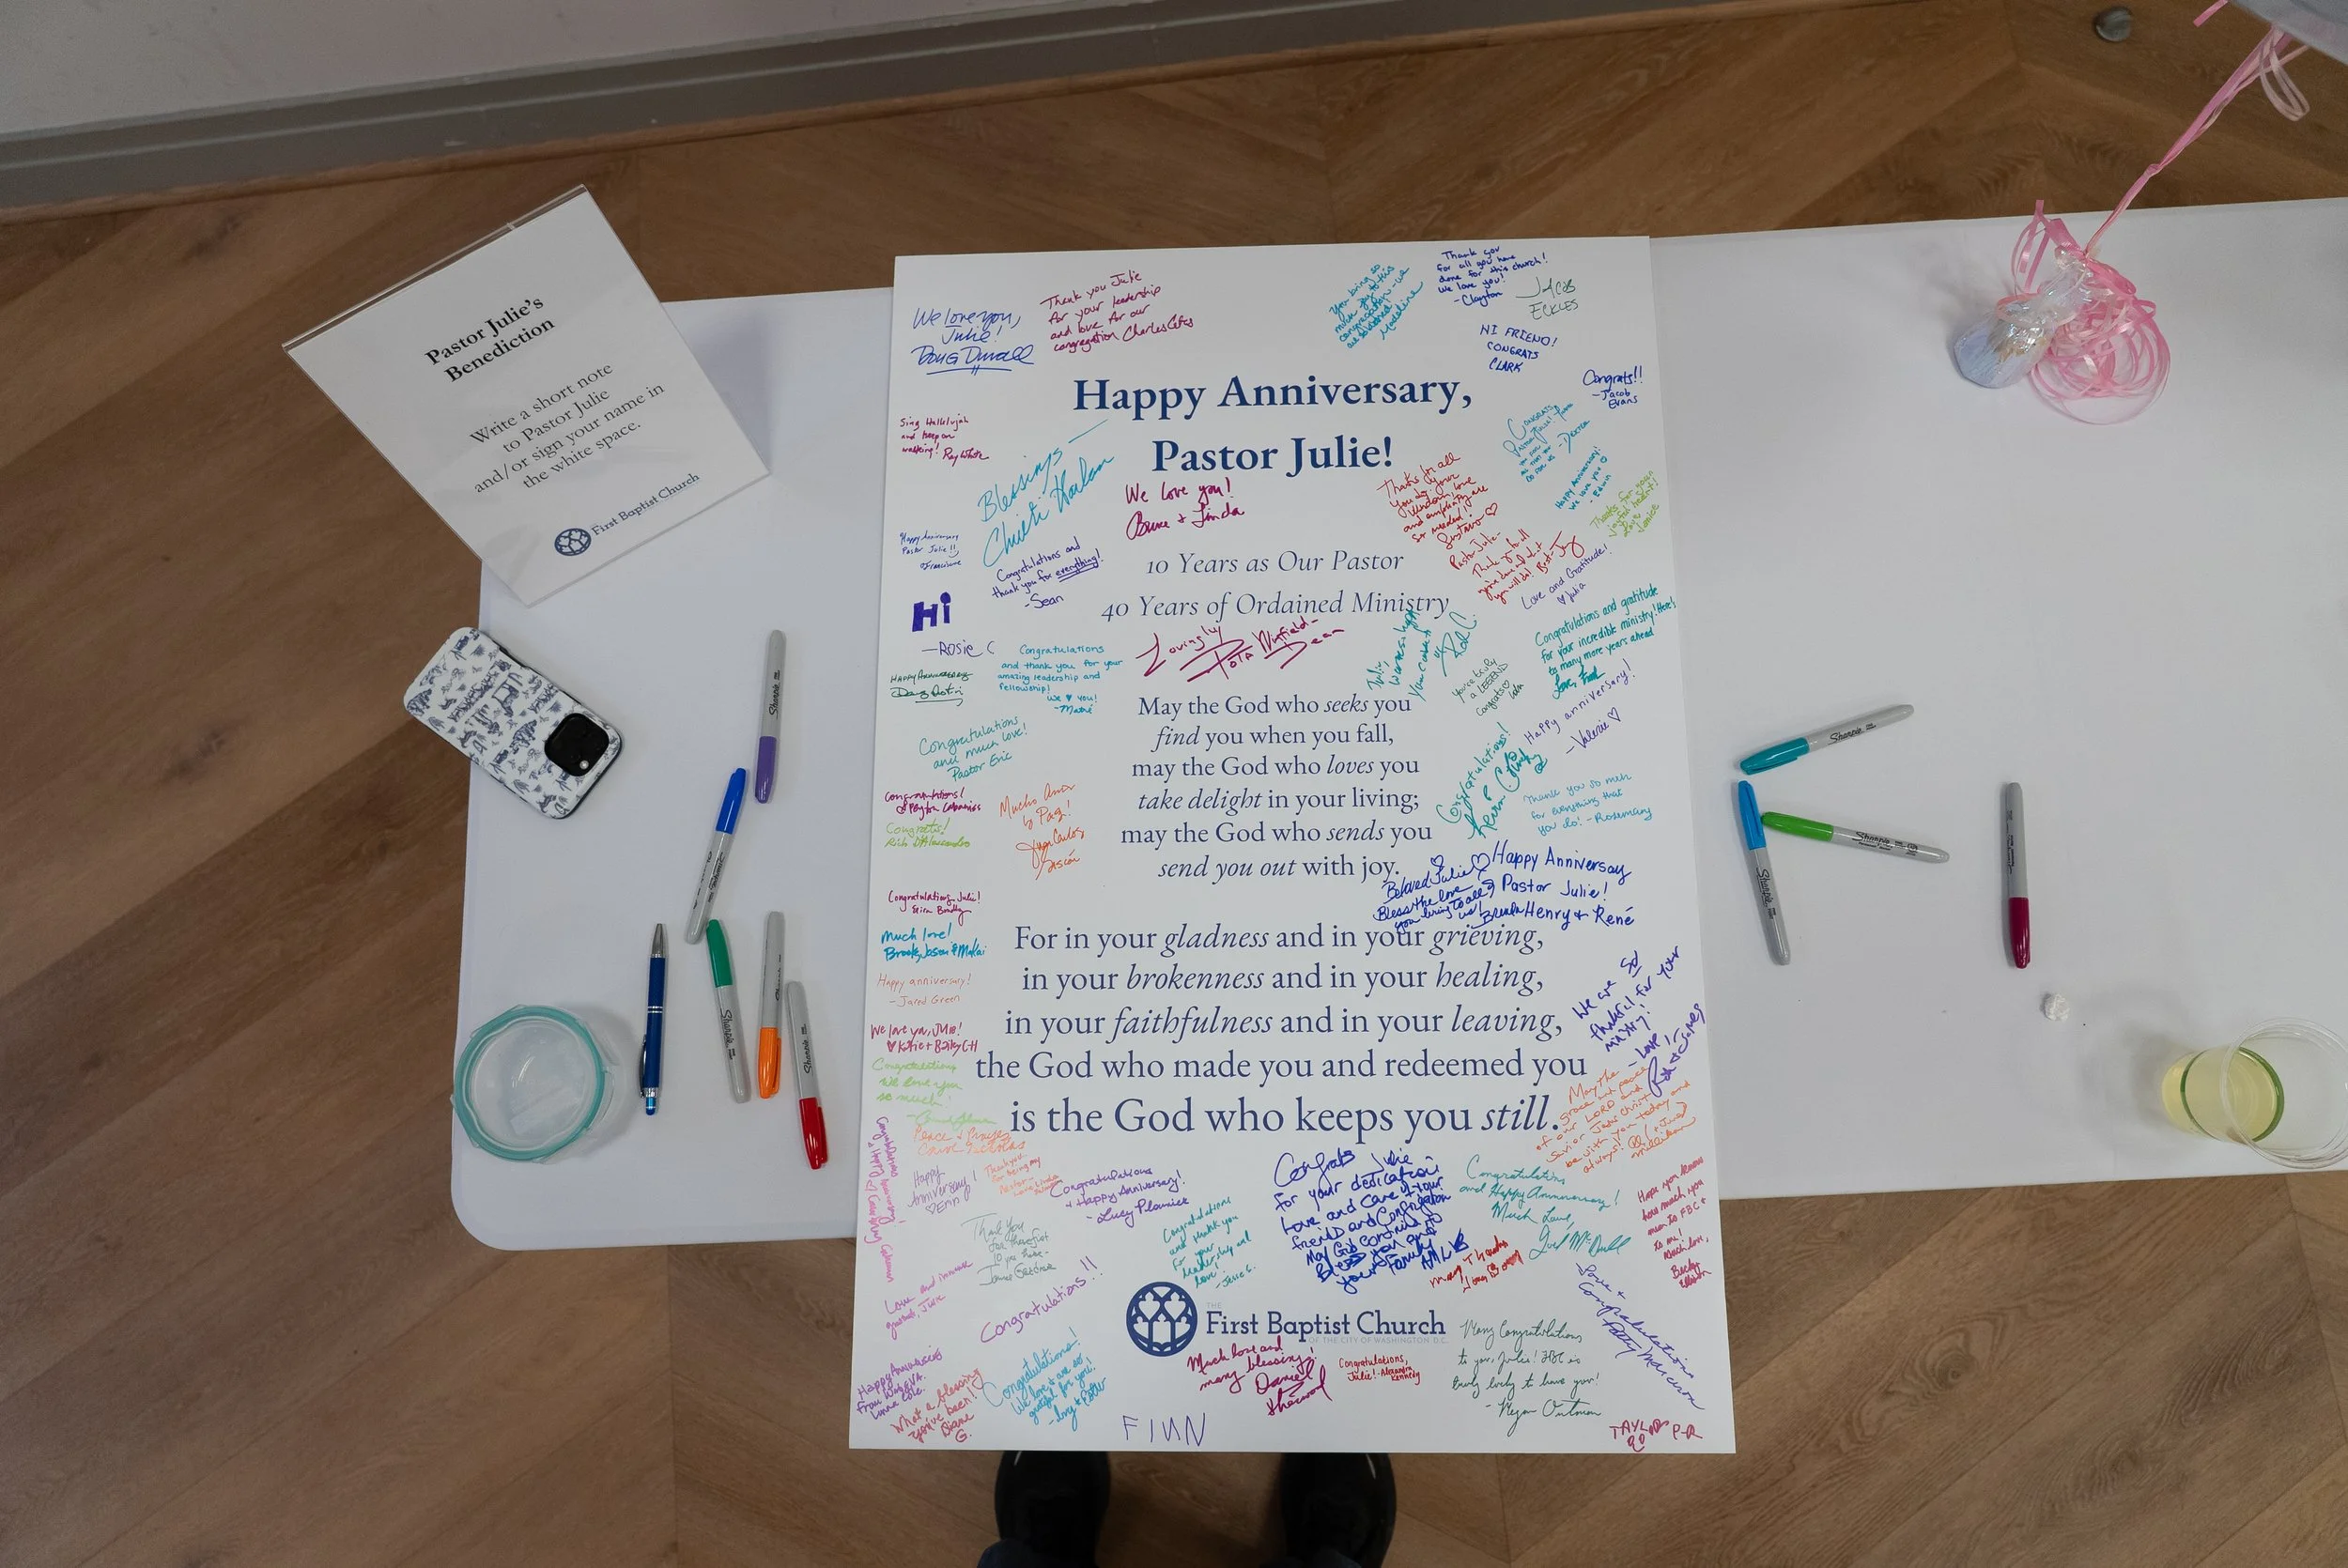 Pastor Julie's
Benediction
Write a short note
to Pastor Julie
and/or sign your name in
the white space.
First Baptist Church
We love you,
Julie!
Doug Duvall
Thank you Julie
for your leadership
and love for our
congregation Charles Cates
You bring so
much joy to this
congregation - we
are so blessed
Madeline
Thank you
for all you have
done for this church!
We love you!
- Clayton
Jacob
Eckles
HI FRIEND!
CONGRATS
CLARK
Congrats!!
- Jacob
Evans
Happy Anniversary,
Pastor Julie!
Sing Hallelujah
and keep on
walking! Ray White
Blessings —
We love you!
+ Linda
Thanks for all
you do, your
love
and empathy are
so needed!
Congrats
Happy Anniversary!
We love you
- Edwin
Thanks for your
joyful heart!
Love
Janice
Happy Anniversary
Pastor Julie!!
Congratulations and
thank you for everything!
- Sean
10 Years as Our Pastor
40 Years of Ordained Ministry
Pastor Julie-
Thank you for all
Love and Gratitude!
♡ Julia
Hi
- Rosie C
HAPPY ANNIVERSARY
Congratulations
and thank you for your
amazing leadership and
fellowship!
We ♥ you!
Lovingly
Winfield-
Dean
You're truly
a LEGEND
Congrats
Congratulations and gratitude
for your incredible ministry! Here's
to many more years ahead
Love,
May the God who seeks you
find you when you fall,
may the God who loves you
take delight in your living;
may the God who sends you
send you out with joy.
Congratulations
and much love!
Pastor Eric
Happy anniversary!
- Valerie ♡
Congratulations!
Congratulations!
Peyton
Congrats!
Rich D'Alessandro
Mucho Amor
y Paz!
Juan Carlos
Thank you so much
for everything that
you do! - Rosemary
Congratulations, Julie!
Much love!
Brooks, Jason & Makai
Happy anniversary!
- Jared Green
Beloved Julie ♡
Bless the love
you bring to all of
us! Brenda
Happy Anniversay
Pastor Julie!
Henry + René
For in your gladness and in your grieving,
in your brokenness and in your healing,
in your faithfulness and in your leaving,
the God who made you and redeemed you
is the God who keeps you still.
We are so
thankful for your
ministry!
- Love,
We love you, Julie!
♥ Katie + Bailey C-H
Congratulations
We love you
so much!
Peace +
Carol
May the
grace and peace
of our LORD and
Savior Jesus Christ
be with you today and
always!
Happy
Anniversary!
♡ Erin
Thank you
for being my
Pastor -
Congratulations
+ Happy Anniversary!
- Lucy Plamick
Congrats Julie
for your dedication
Love and care of your
friend and Congregation
May God continue to
Bless you and
your family
AMLB
Congratulations
and Happy Anniversary!
Much Love,
Joel McDull
Hope you know
how much you
mean to FBC +
to me!
Much love,
Becky
Thank You
for the first
10 yrs here -
Congratulations
and thank you
for your
leadership and
love!
- Jesse G.
Many Thanks
Love and
Congratulations!!
THE
First Baptist Church
OF THE CITY OF WASHINGTON D.C.
Love +
Congratulations
Patty
Happy Anniversary
from
What a blessing
you've been!
Diane
G.
Congratulations!
We love + are so
grateful for you!
FINN
Much love and
many blessings!
Daniel
Sherwood
Congratulations,
Julie! - Alexandra
Kennedy
Many Congratulations
to you, Julie! FBC is
truly lucky to have you!
- Megan
TAYLOR P-R
Sharpie
Sharpie
Sharpie
Sharpie
Sharpie
Sharpie
Sharpie